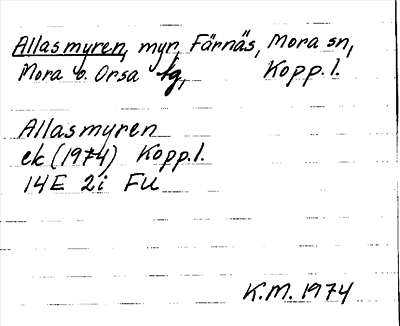 Allasmyren, myr, Färnäs, Mora sn,
Mora o. Orsa tg, Kopp. l.
Allasmyren
ek (1974) Kopp. l.
14E 2i FU
K.M. 1974